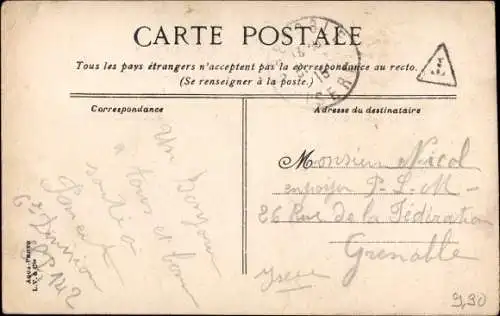 CARTE POSTALE
Tous les pays étrangers n'acceptent pas la correspondance au recto.
(Se renseigner à la poste.)
Correspondance
Adresse du destinataire
Un bonjour
à tous et bonne
santé
6e Division
SP 142
Monsieur Nicol
employé P-L-M-
26 Rue de la Fédération
Grenoble
Isère
Aqua-Photo
L.V. & Cie
9,30